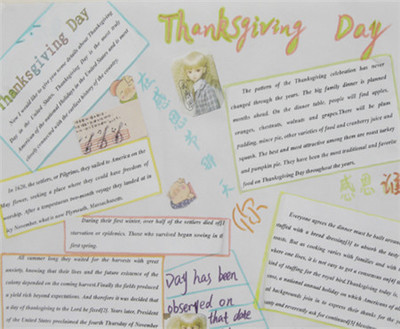 Thanksgiving Day
Thanksgiving Day
Now I would like to give you some details about Thanksgiving
Day in the United States. Thanksgiving Day is the most truly
American of the national Holidays in the United States and is most
closely connected with the earliest history of the country.
In 1620, the settlers, or Pilgrims, they sailed to America on the
May flower, seeking a place where they could have freedom of
worship. After a tempestuous two-month voyage they landed at in
icy November, what is now Plymouth, Massachusetts.
During their first winter, over half of the settlers died of
starvation or epidemics. Those who survived began sowing in the
first spring.
All summer long they waited for the harvests with great
anxiety, knowing that their lives and the future existence of the
colony depended on the coming harvest. Finally the fields produced
a yield rich beyond expectations. And therefore it was decided that
a day of thanksgiving to the Lord be fixed[2]. Years later, President
of the United States proclaimed the fourth Thursday of November
在感恩节聊天
The pattern of the Thanksgiving celebration has never
changed through the years. The big family dinner is planned
months ahead. On the dinner table, people will find apples,
oranges, chestnuts, walnuts and grapes. There will be plum
pudding, mince pie, other varieties of food and cranberry juice and
squash. The best and most attractive among them are roast turkey
and pumpkin pie. They have been the most traditional and favorite
food on Thanksgiving Day throughout the years.
感恩
你
Day has been
observed on
that date
Everyone agrees the dinner must be built around
stuffed with a bread dressing[3] to absorb the tasty
roasts. But as cooking varies with families and with
where one lives, it is not easy to get a consensus on
kind of stuffing for the royal bird. Thanksgiving today is,
case, a national annual holiday on which Americans of